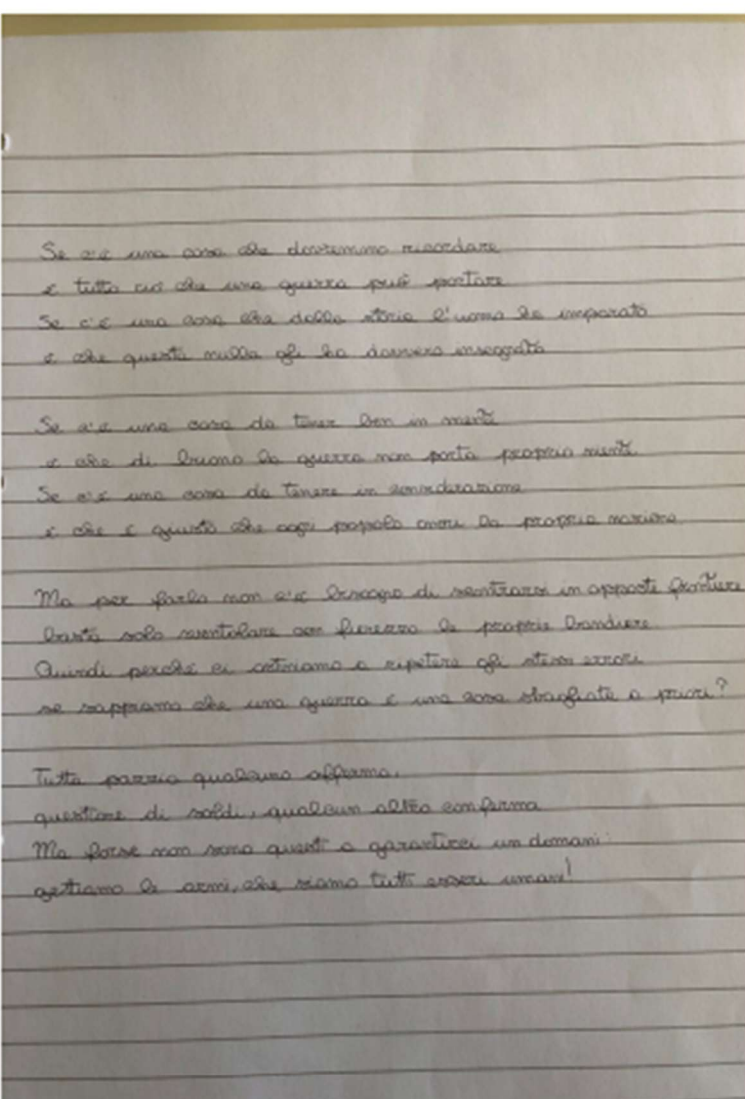 Se c'è una cosa che dovremmo ricordare
è tutto ciò che una guerra può portare
Se c'è una cosa che dalla storia l'uomo ha imparato
è che questa nulla gli ha davvero insegnato
Se c'è una cosa da tener ben in mente
è che di buono la guerra non porta proprio niente
Se c'è una cosa da tenere in considerazione
è che è giusto che ogni popolo onori la propria nazione
Ma per farlo non c'è bisogno di scontrarsi in opposte frontiere
basta solo sventolare con fierezza le proprie bandiere
Quindi perché ci ostiniamo a ripetere gli stessi errori
se sappiamo che una guerra è una cosa sbagliata a priori?
Tutta pazzia qualcuno afferma,
questione di soldi, qualcun altro conferma
Ma forse non sono questi a garantirci un domani:
gettiamo le armi, che siamo tutti esseri umani!